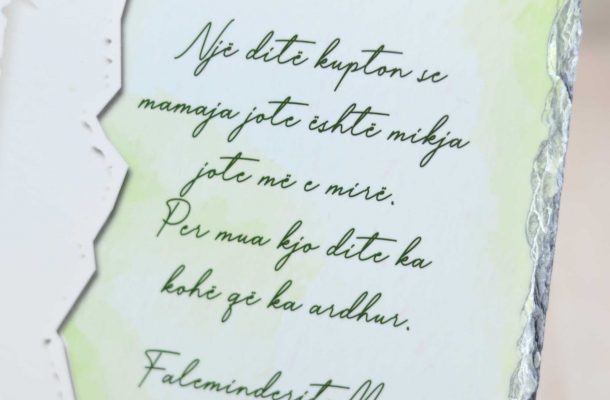 Një ditë kupton se
mamaja jote është mikja
jote më e mirë.
Per mua kjo dite ka
kohë që ka ardhur.
Faleminderit